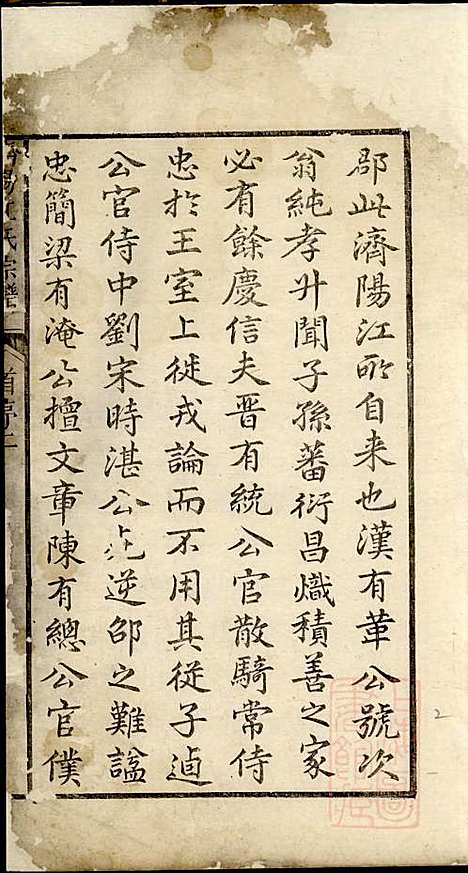 郡此濟陽江所自来也漢有革公號次
翁純孝升聞子孫蕃衍昌熾積善之家
必有餘慶信夫晋有統公官散騎常侍
忠於王室上徙戎論而不用其從子逌
公官侍中劉宋時湛公死逆邵之難諡
忠簡梁有淹公擅文章陳有總公官僕
陽江氏宗譜
首序二
2